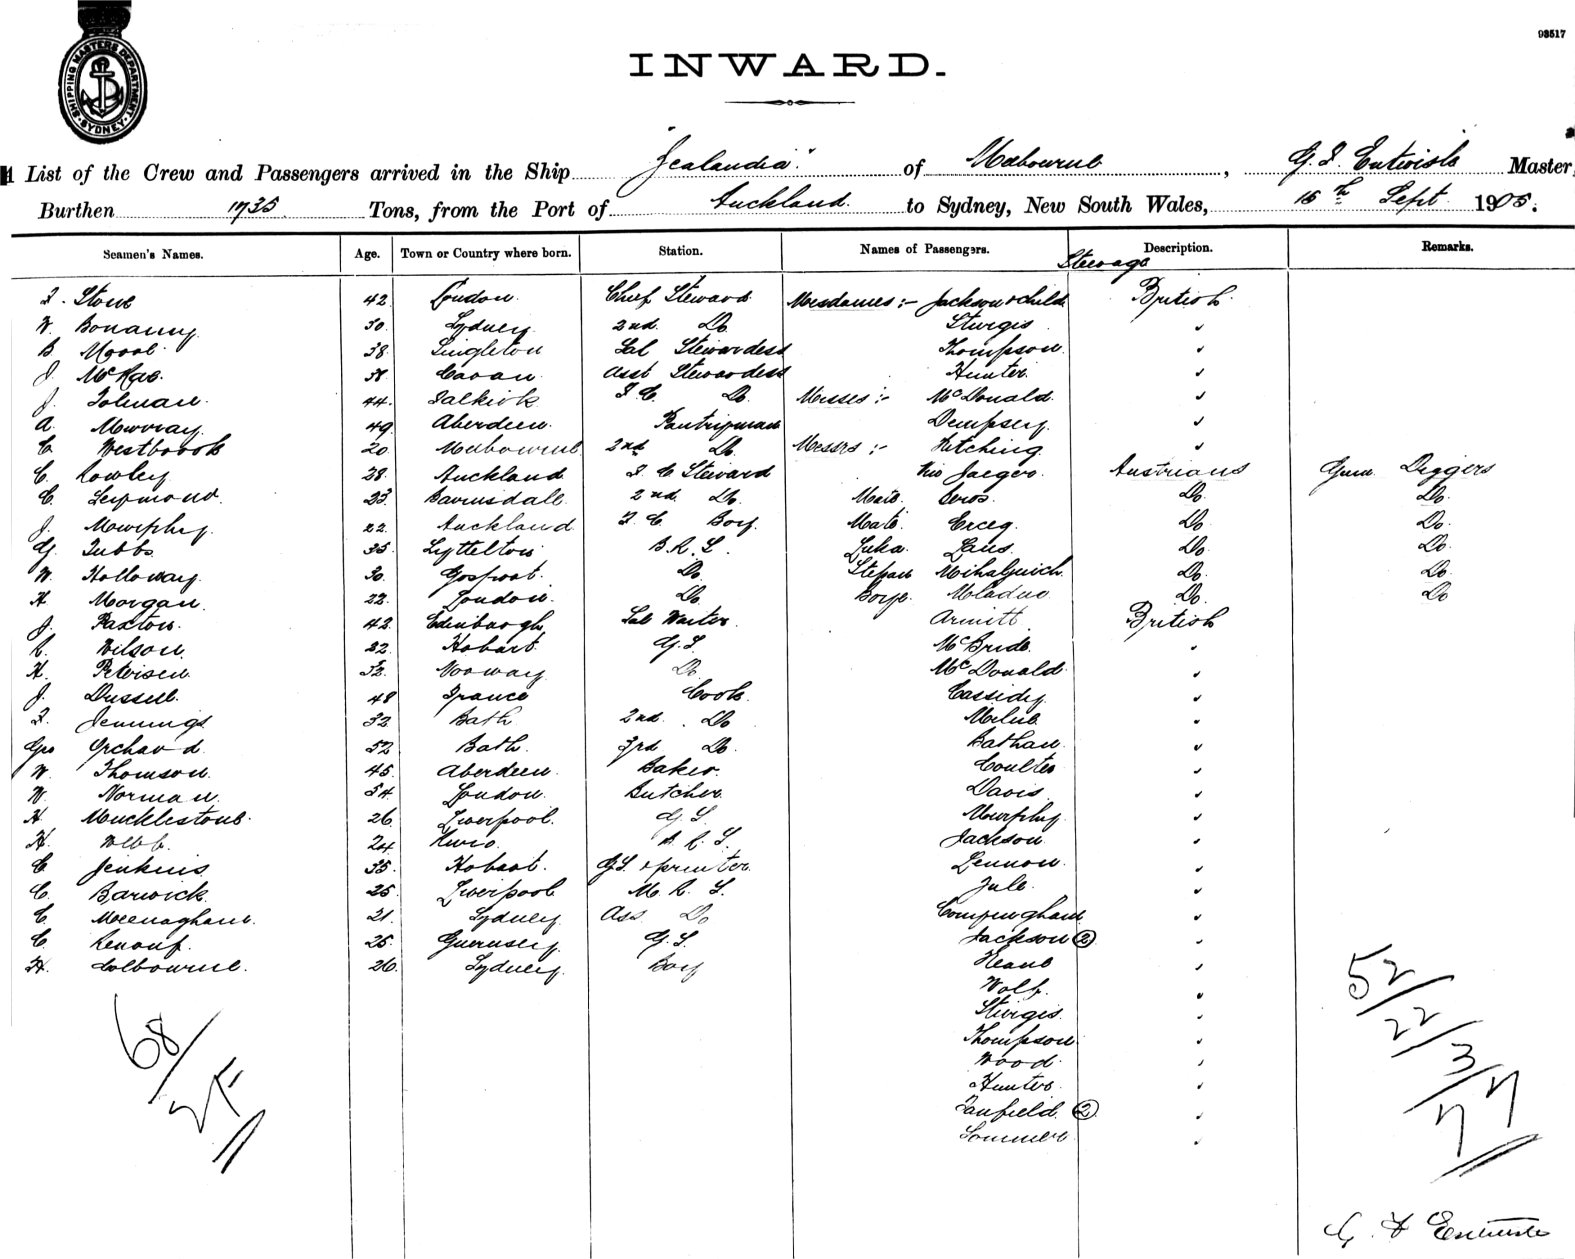 SHIPPING MASTERS DEPARTMENT · SYDNEY ·
93517
INWARD.
List of the Crew and Passengers arrived in the Ship "Zealandia" of Melbourne, G. F. Entwistle Master,
Burthen 1735 Tons, from the Port of Auckland to Sydney, New South Wales, 15th Sept 1905.
Seamen's Names. Age. Town or Country where born. Station. Names of Passengers. Description. Remarks.
Steerage
F. Stone 42 London Chief Steward Mesdames :- Jackson & child British
W. Bonanny 30 Sydney 2nd Do Sturgis "
B. 38 Singleton Sal Stewardess Thompson "
J. McRae Cavan Asst Stewardess Hunter "
J. Tolman 44 Falkirk F. C. Do. Misses :- McDonald "
A. Mowray 49 Aberdeen Pantryman Dempsey "
C. Westbrook 20 Melbourne 2nd Do. Messrs :- Hitching "
C. Rowley 28 Auckland F. C. Steward Jaeger Austrians Gum Diggers
C. Seymond 23 Bairnsdale 2nd Do. Mate Seros Do. Do.
J. Murphy 22 Auckland F. C. Boy Mate Erceg Do. Do.
G. Tubbs 35 Lyttelton B. R. S. Luka Do. Do.
W. Holloway 30 Gosport Do. Stepan Mihaljevich Do. Do.
H. Morgan 22 London Do. Do. Do
J. Paxton 42 Edinburgh Sal Waiter Armitt British
R. Wilson 22 Hobart G. S. McBride "
H. Petersen 32 Norway Do. McDonald "
J. Dussell 48 France Cook Cassidy "
F. Jennings 32 Bath 2nd Do Milne "
Geo Orchard 52 Bath 3rd Do. Bathan "
W. Thomson 45 Aberdeen Baker Coulter "
W. Norman 34 London Butcher Davis "
H. Mucklestone 26 Liverpool G. S. Murphy "
H. Webb 24 Jackson "
C. Jenkins 35 Hobart G. S. & printer Lennon "
C. Barwick 25 Liverpool M. R. S. Jule "
C. Meenaghan 21 Sydney Ass Do "
C. Renouf 25 Guernsey G. S. Jackson (2) "
H. Colbourne 26 Sydney Boy "
Wolf "
Sturgis "
Thompson "
Wood "
Hunter "
Fanfield (2) "
Sommer "
68/
2F
52/
22/
3/
77
G. F. Entwistle